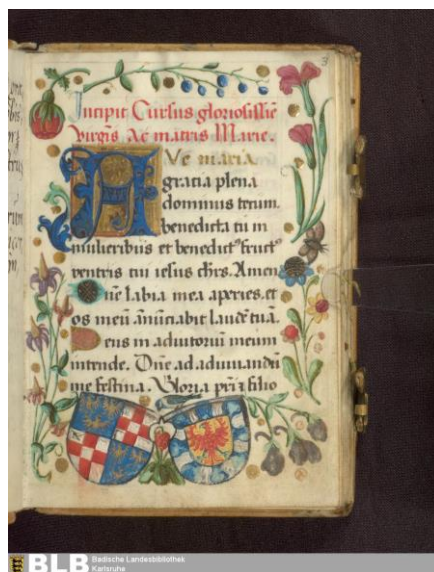 3
Incipit Cursus gloriosissīe
virgīs Ac matris Marie.
Ave maria
gratia plena
dominus tecum.
benedicta tu in
mulieribus et benedictꝰ fructꝰ
ventris tui iesus chrs. Amen
Dñe labia mea aperies. et
os meū anūciabit laudē tuā.
Deus in adiutoriū meum
intende. Dñe ad adiuuandū
me festina. Gloria pr̄i ⁊ filio
BLB Badische Landesbibliothek
Karlsruhe